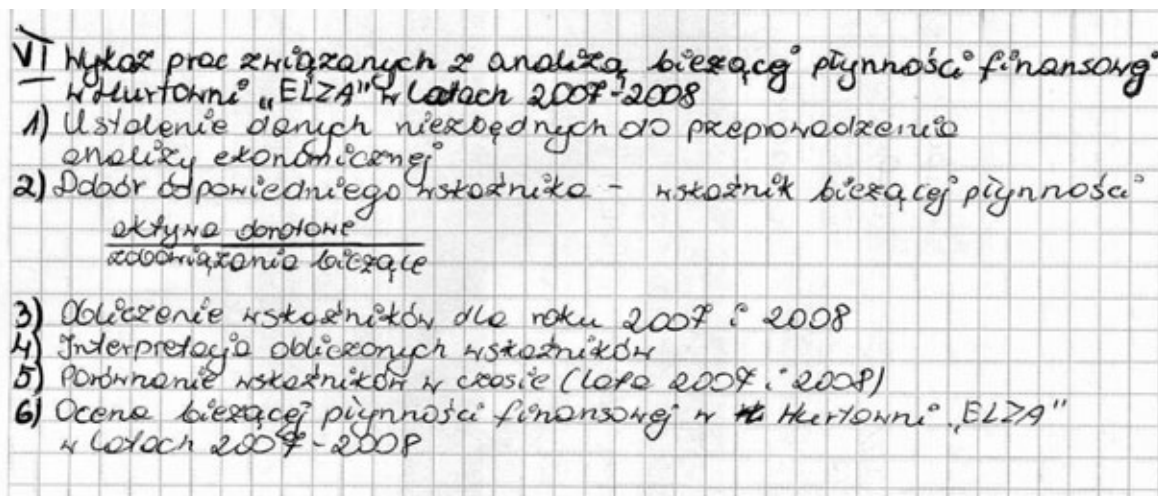 VI Wykaz prac związanych z analizą bieżącej płynności finansowej
w Hurtowni „ELZA" w latach 2007-2008
1) Ustalenie danych niezbędnych do przeprowadzenia
analizy ekonomicznej
2) Dobór odpowiedniego wskaźnika - wskaźnik bieżącej płynności
aktywa obrotowe
zobowiązania bieżące
3) Obliczenie wskaźników dla roku 2007 i 2008
4) Interpretacja obliczonych wskaźników
5) Porównanie wskaźników w czasie (lata 2007 i 2008)
6) Ocena bieżącej płynności finansowej w Hurtowni „ELZA"
w latach 2007-2008